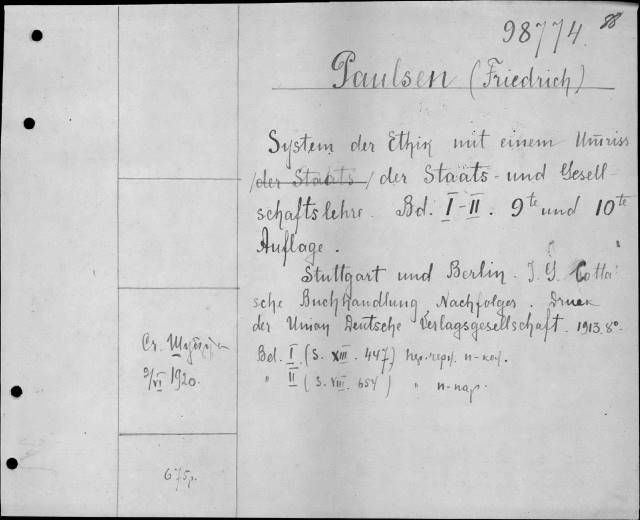 98774
Paulsen (Friedrich)
System der Ethik mit einem Umriss
/der Staats/ der Staats- und Gesell-
schaftslehre. Bd. I-II. 9te und 10te
Auflage.
Stuttgart und Berlin. J. G. Cotta'
sche Buchhandlung Nachfolger. Druck
der Union Deutsche Verlagsgesellschaft. 1913. 8°.
Bd. I (S. XIII. 447)
" II (S. VIII. 654) "
Ст.
3/VI 1920.
675р.